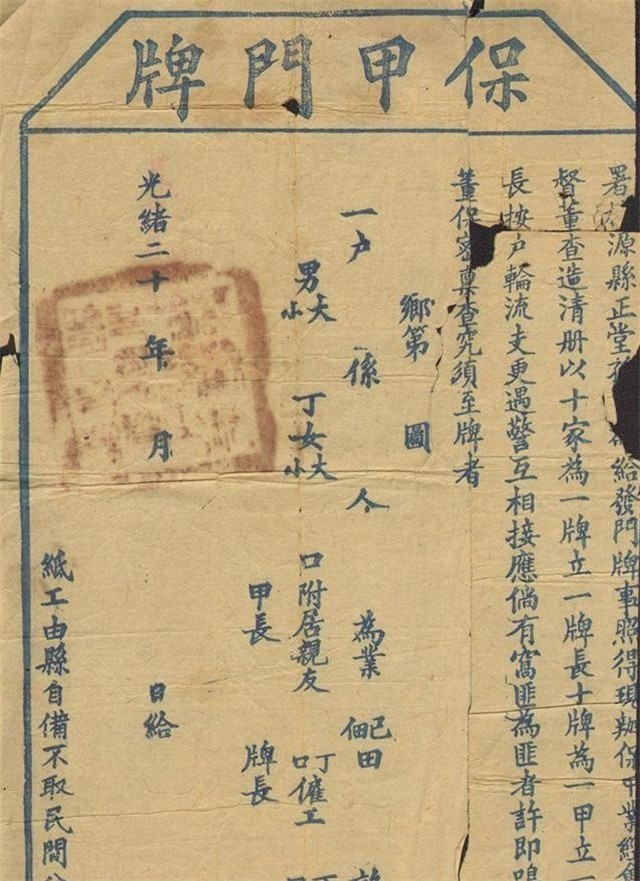 保甲門牌
署 源縣正堂 給發門牌事照得現辦保甲業經會
督董查造清册以十家為一牌立一牌長十牌為一甲立一
長按戶輪流支更遇警互相接應倘有窩匪為匪者許即鳴
董保密稟查究須至牌者
鄉第 圖
一户 係 人 為業 己田 佃
男大小 丁女大小 口附居親友 丁口僱工 丁
甲長 牌長
光緒二十 年 月 日給
紙工由縣自備不取民間分